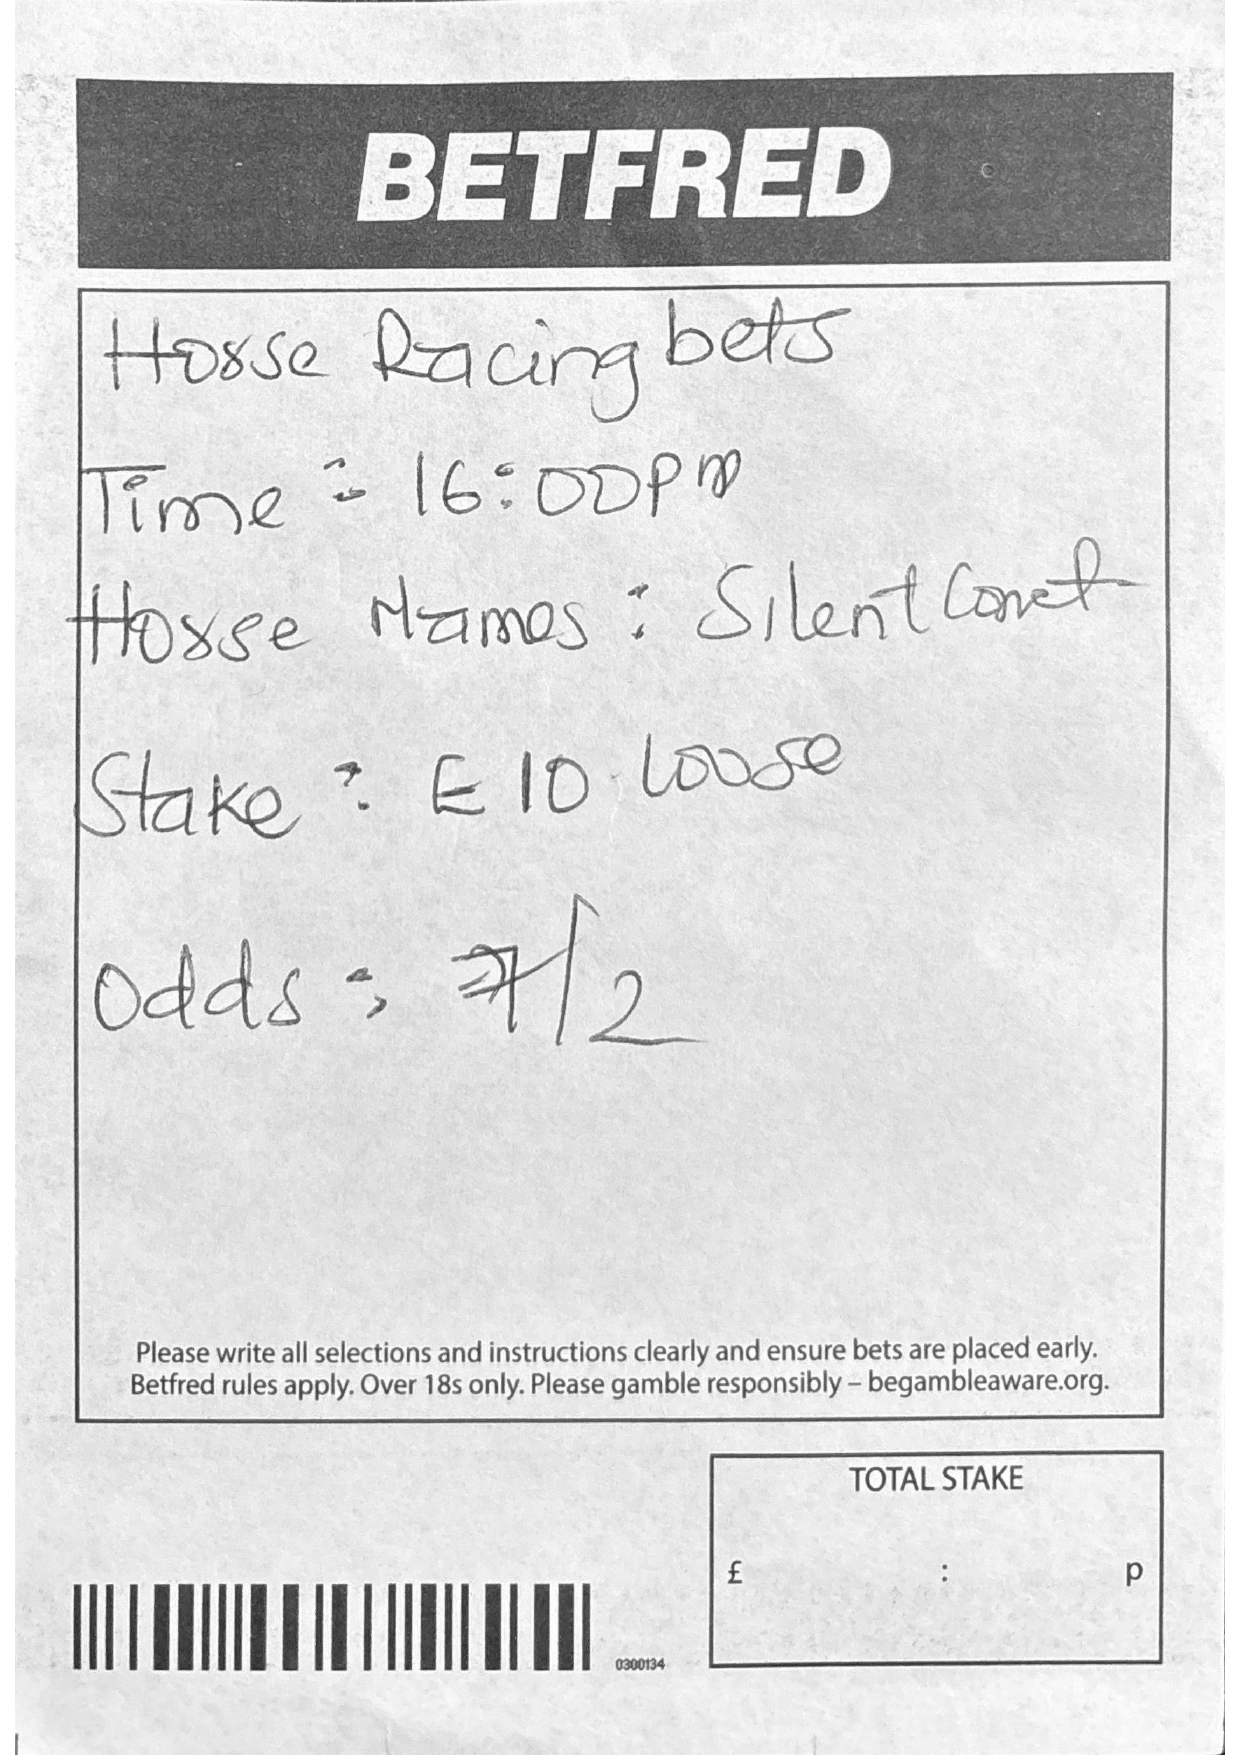 BETFRED
Horse Racing bets
Time : 16:00pm
Horse Names : Silent Comet
Stake : £10 loose
Odds : 7/2
Please write all selections and instructions clearly and ensure bets are placed early.
Betfred rules apply. Over 18s only. Please gamble responsibly – begambleaware.org.
TOTAL STAKE
£ : p
0300134